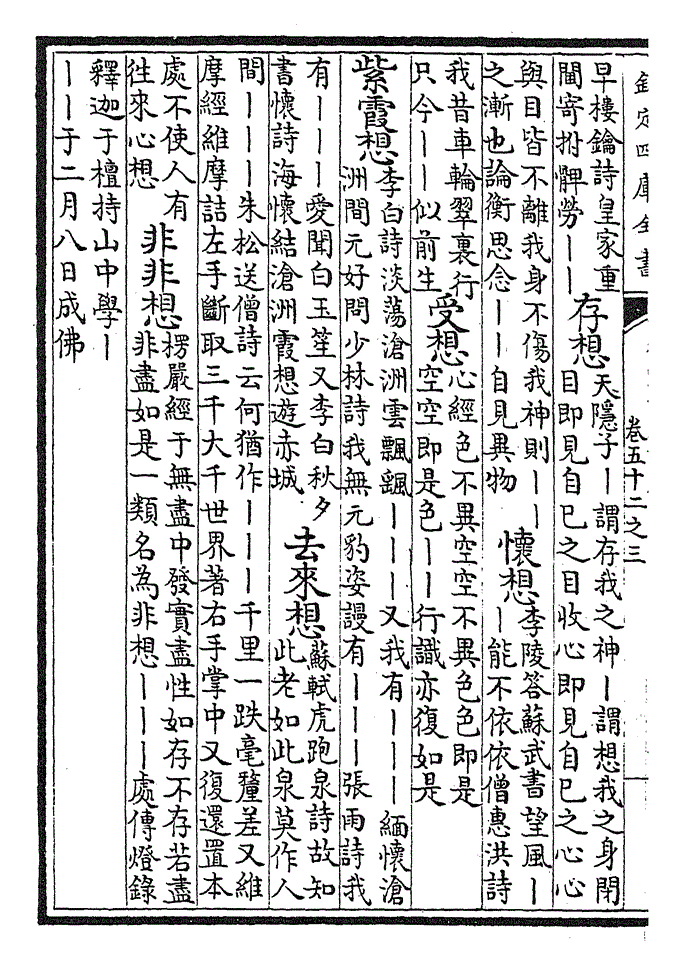 欽定四庫全書
卷五十二之三
早樓鑰詩皇家重
閫寄拊髀勞丨丨
存想
天隱子丨謂存我之神丨謂想我之身閉
目即見自已之目收心即見自已之心心
與目皆不離我身不傷我神則丨丨
之漸也論衡思念丨丨自見異物
懷想
李陵答蘇武書望風丨
丨能不依依僧惠洪詩
我昔車輪翠裏行
只今丨丨似前生
受想
心經色不異空空不異色色即是
空空即是色丨丨行識亦復如是
紫霞想
李白詩淡蕩滄洲雲飄颻丨丨丨又我有丨丨丨緬懷滄
洲間元好問少林詩我無元豹姿謾有丨丨丨張雨詩我
有丨丨丨愛聞白玉笙又李白秋夕
書懷詩海懷結滄洲霞想遊赤城
去來想
蘇軾虎跑泉詩故知
此老如此泉莫作人
間丨丨丨朱松送僧詩云何猶作丨丨丨千里一跌毫釐差又維
摩經維摩詰左手斷取三千大千世界著右手掌中又復還置本
處不使人有
往來心想
非非想
楞嚴經于無盡中發實盡性如存不存若盡
非盡如是一類名為非想丨丨丨處傳燈錄
釋迦于檀持山中學丨
丨丨于二月八日成佛